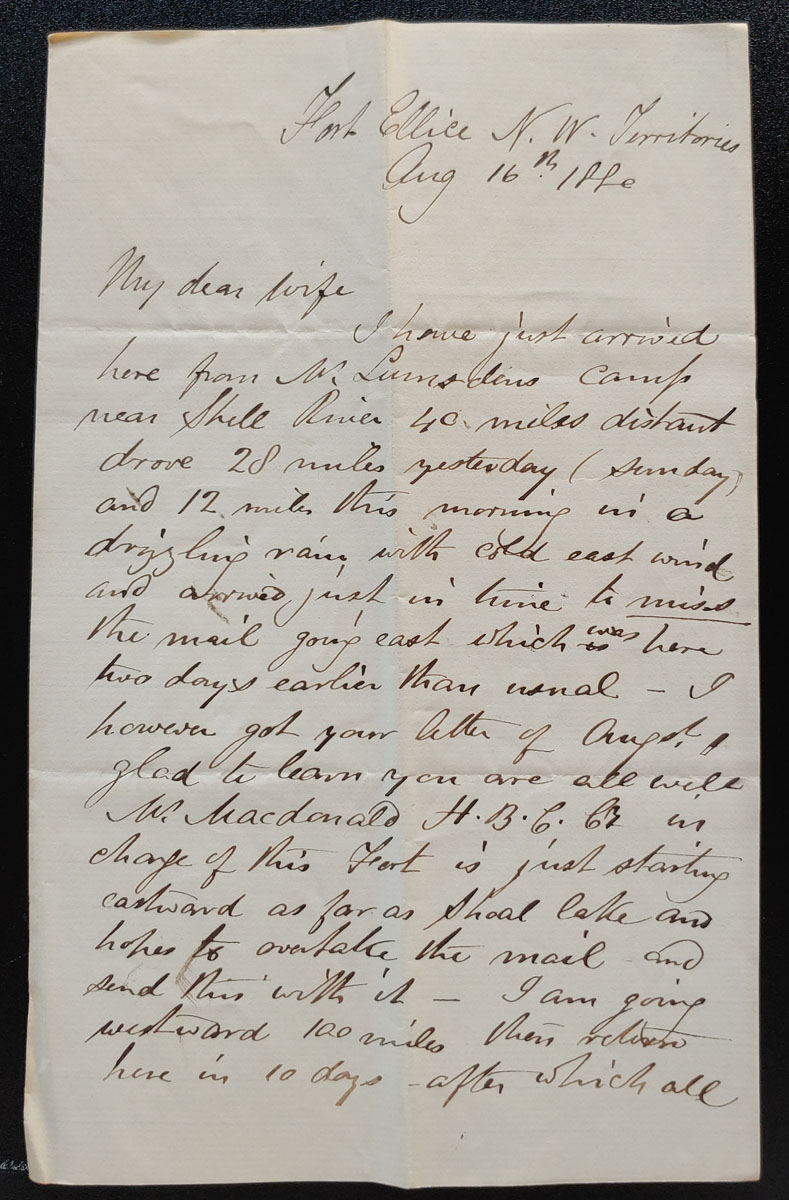 Fort Ellice N. W. Territories
Aug 16th 1880
My dear wife
I have just arrived
here from Mr. Lumsdens Camp
near Shell River 40 miles distant
drove 28 miles yesterday (Sunday)
and 12 miles this morning in a
drizzling rain with cold east wind
and arrived just in time to miss
the mail going east which was here
two days earlier than usual – I
however got your letter of Augst. 1
glad to learn you are all well
Mr. Macdonald H. B. C. in
charge of this Fort is just starting
eastward as far as Shoal lake and
hopes to overtake the mail and
send this with it – I am going
westward 100 miles then return
here in 10 days – after which all